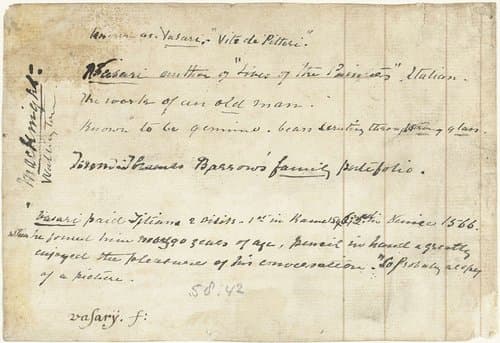 known as Vasari, "Vite de Pittori".
Vasari author of "Lives of the Painters", Italian.
the work of an old man.
Known to be genuine. bears scrutiny through strong glass.
Thomas Barrow's family portfolio.
Macknight
Vasari paid Titian a 2 visits - 1st in Rome, 2nd in Venice 1566.
when he found him 90 years of age, pencil in hand & greatly
enjoyed the pleasures of his conversation. "So Probably a copy
of a picture.
58.42
vasarÿ. f: